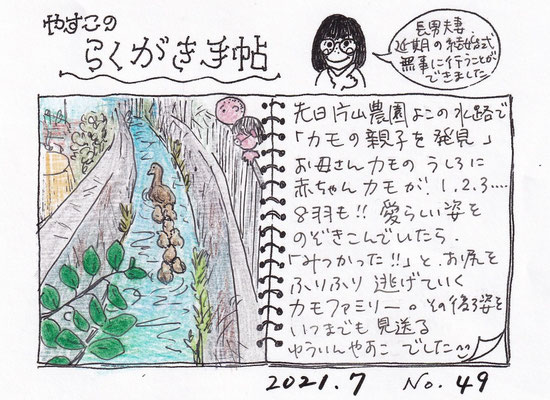 やすこの
らくがき手帖
長男夫妻、
延期の結婚式
無事に行うことが
できました
先日片山農園よこの水路で
「カモの親子を発見」
お母さんカモのうしろに
赤ちゃんカモが、1.2.3‥‥
8羽も!! 愛らしい姿を
のぞきこんでいたら、
「みつかった!!」と、お尻を
ふりふり 逃げていく
カモファミリー。その後ろ姿を
いつまでも 見送る
でした
2021.7 No.49